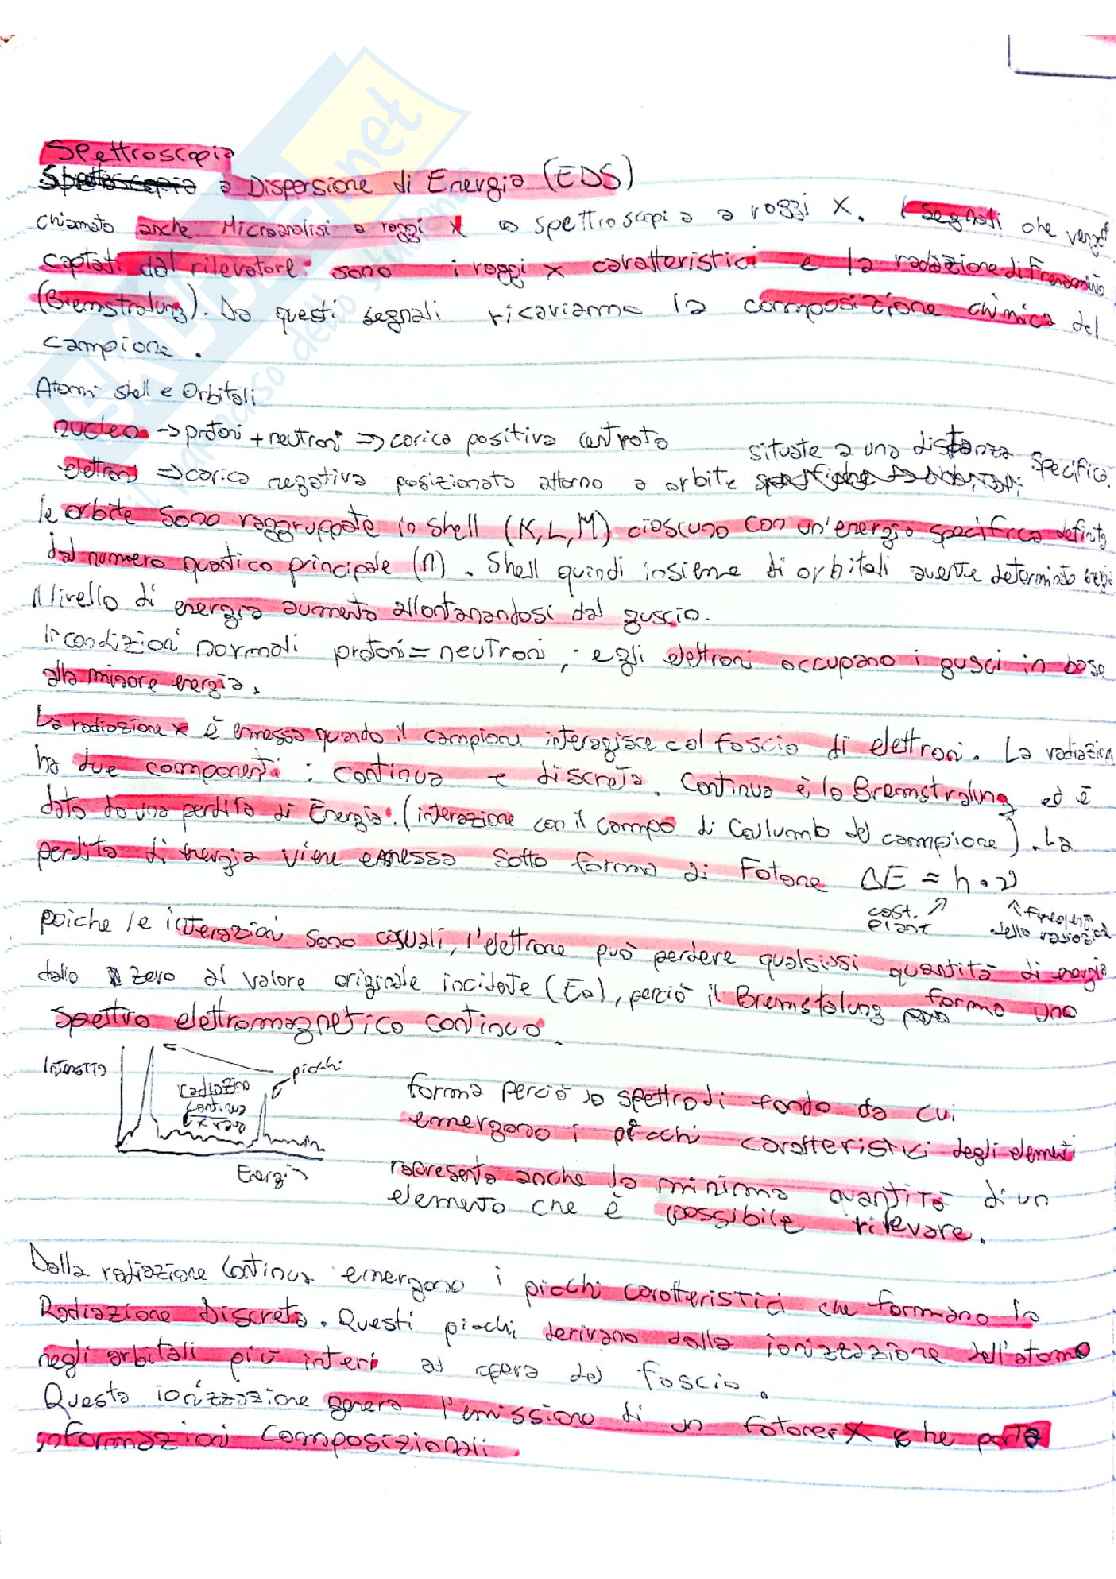 Spettroscopia
Spettroscopia a Dispersione di Energia (EDS)
chiamato anche Microanalisi a raggi X o spettroscopia a raggi X. I segnali che
captati dal rilevatore: sono i raggi x caratteristici e la radiazione di
(Bremstralung). Da questi segnali ricaviamo la composizione chimica del
campione.
Atomi shell e Orbitali
nucleo → protoni + neutroni ⇒ carica positiva centrata
situate a una distanza specifica.
elettroni ⇒ carica negativa posizionata attorno a orbite
le orbite sono raggruppate in shell (K,L,M) ciascuno con un'energia specifica definita
dal numero quantico principale (n). Shell quindi insieme di orbitali avente determinato
Il livello di energia aumenta allontanandosi dal guscio.
In condizioni normali protoni = neutroni, e gli elettroni occupano i gusci in base
alla minore energia.
La radiazione x è emessa quando il campione interagisce col fascio di elettroni. La radiazione
ha due componenti: continua e discreta. Continua è la Bremstralung ed è
data da una perdita di Energia. (interazione con il campo di Coulumb del campione). La
perdita di energia viene emessa sotto forma di Fotone ΔE = h . ν
cost. Plant
↑ frequenza della radiazione
poiche le interazioni sono casuali, l'elettrone può perdere qualsiasi quantità di energia
dallo zero al valore originale incidente (E0), perciò il Bremstalung forma uno
spettro elettromagnetico continuo.
Intensità
picchi
radiazione continua
Energia
forma perciò lo spettro di fondo da cui
emergono i picchi caratteristici degli elementi
rappresenta anche la minima quantità di un
elemento che è possibile rilevare.
Dalla radiazione continua emergono i picchi caratteristici che formano la
Radiazione Discreta. Questi picchi derivano dalla ionizzazione dell'atomo
negli orbitali più interni ad opera del fascio.
Questa ionizzazione genera l'emissione di un fotone X che porta
informazioni composizionali.